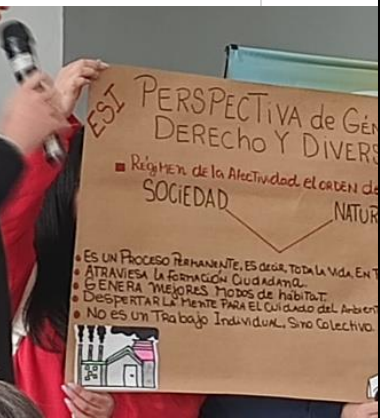 ESI
PERSPECTiVA de GÉN
DERECho Y DIVERS
RÉGiMEN de la Afectividad el ORDEN de
SOCiEDAD
NATUR
• ES UN PROCESO PERMANENTE, ES decir, TODA LA VIDA, EN T
• ATRAVIESA LA FORMACIÓN CIUDADANA.
• GENERA MEJORES MODOS DE HABITAT.
• DESPERTAR LA MENTE PARA EL CUIDADO DEL AMBIENT
• NO ES UN TRABAJO INDIVIDUAL, SINO COLECTIVO.